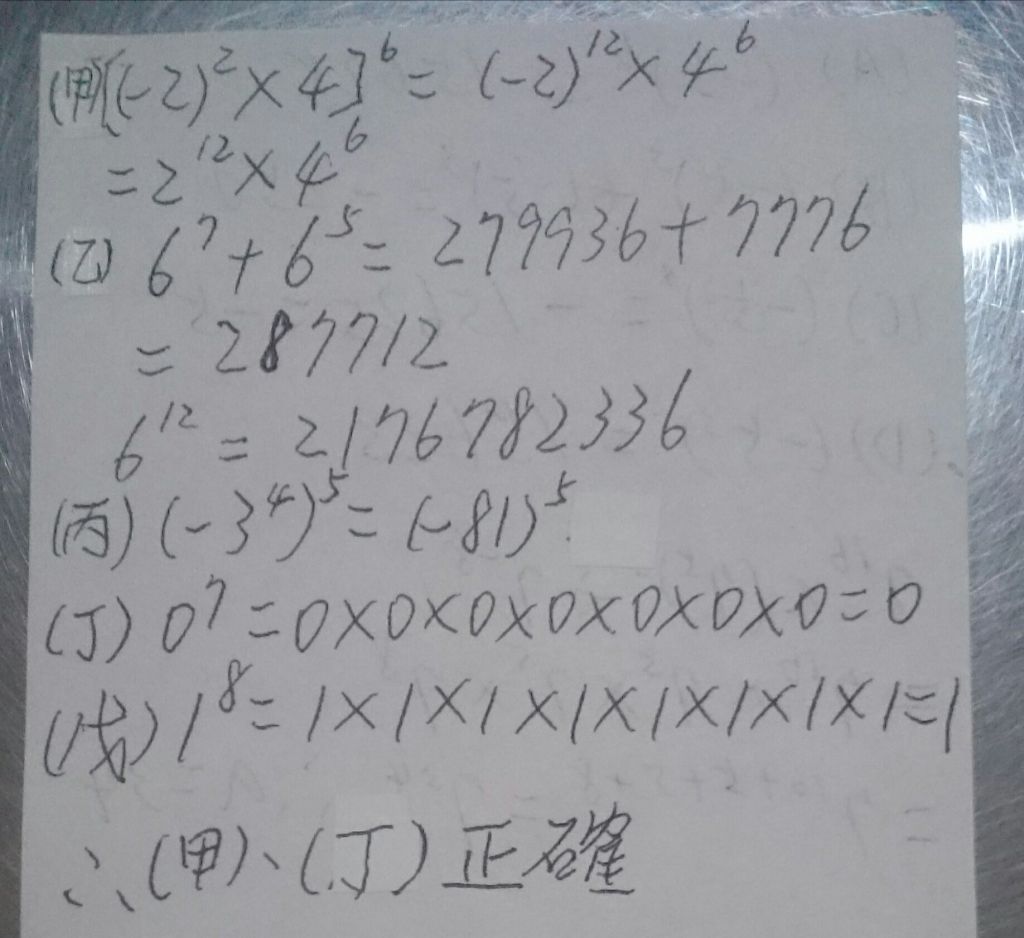 (甲)[(-2)²×4]⁶=(-2)¹²×4⁶
=2¹²×4⁶
(乙) 6⁷+6⁵=279936+7776
=287712
6¹²=2176782336
(丙)(-3⁴)⁵=(-81)⁵
(丁) 0⁷=0×0×0×0×0×0×0=0
(戊) 1⁸=1×1×1×1×1×1×1×1=1
∴(甲)、(丁)正確